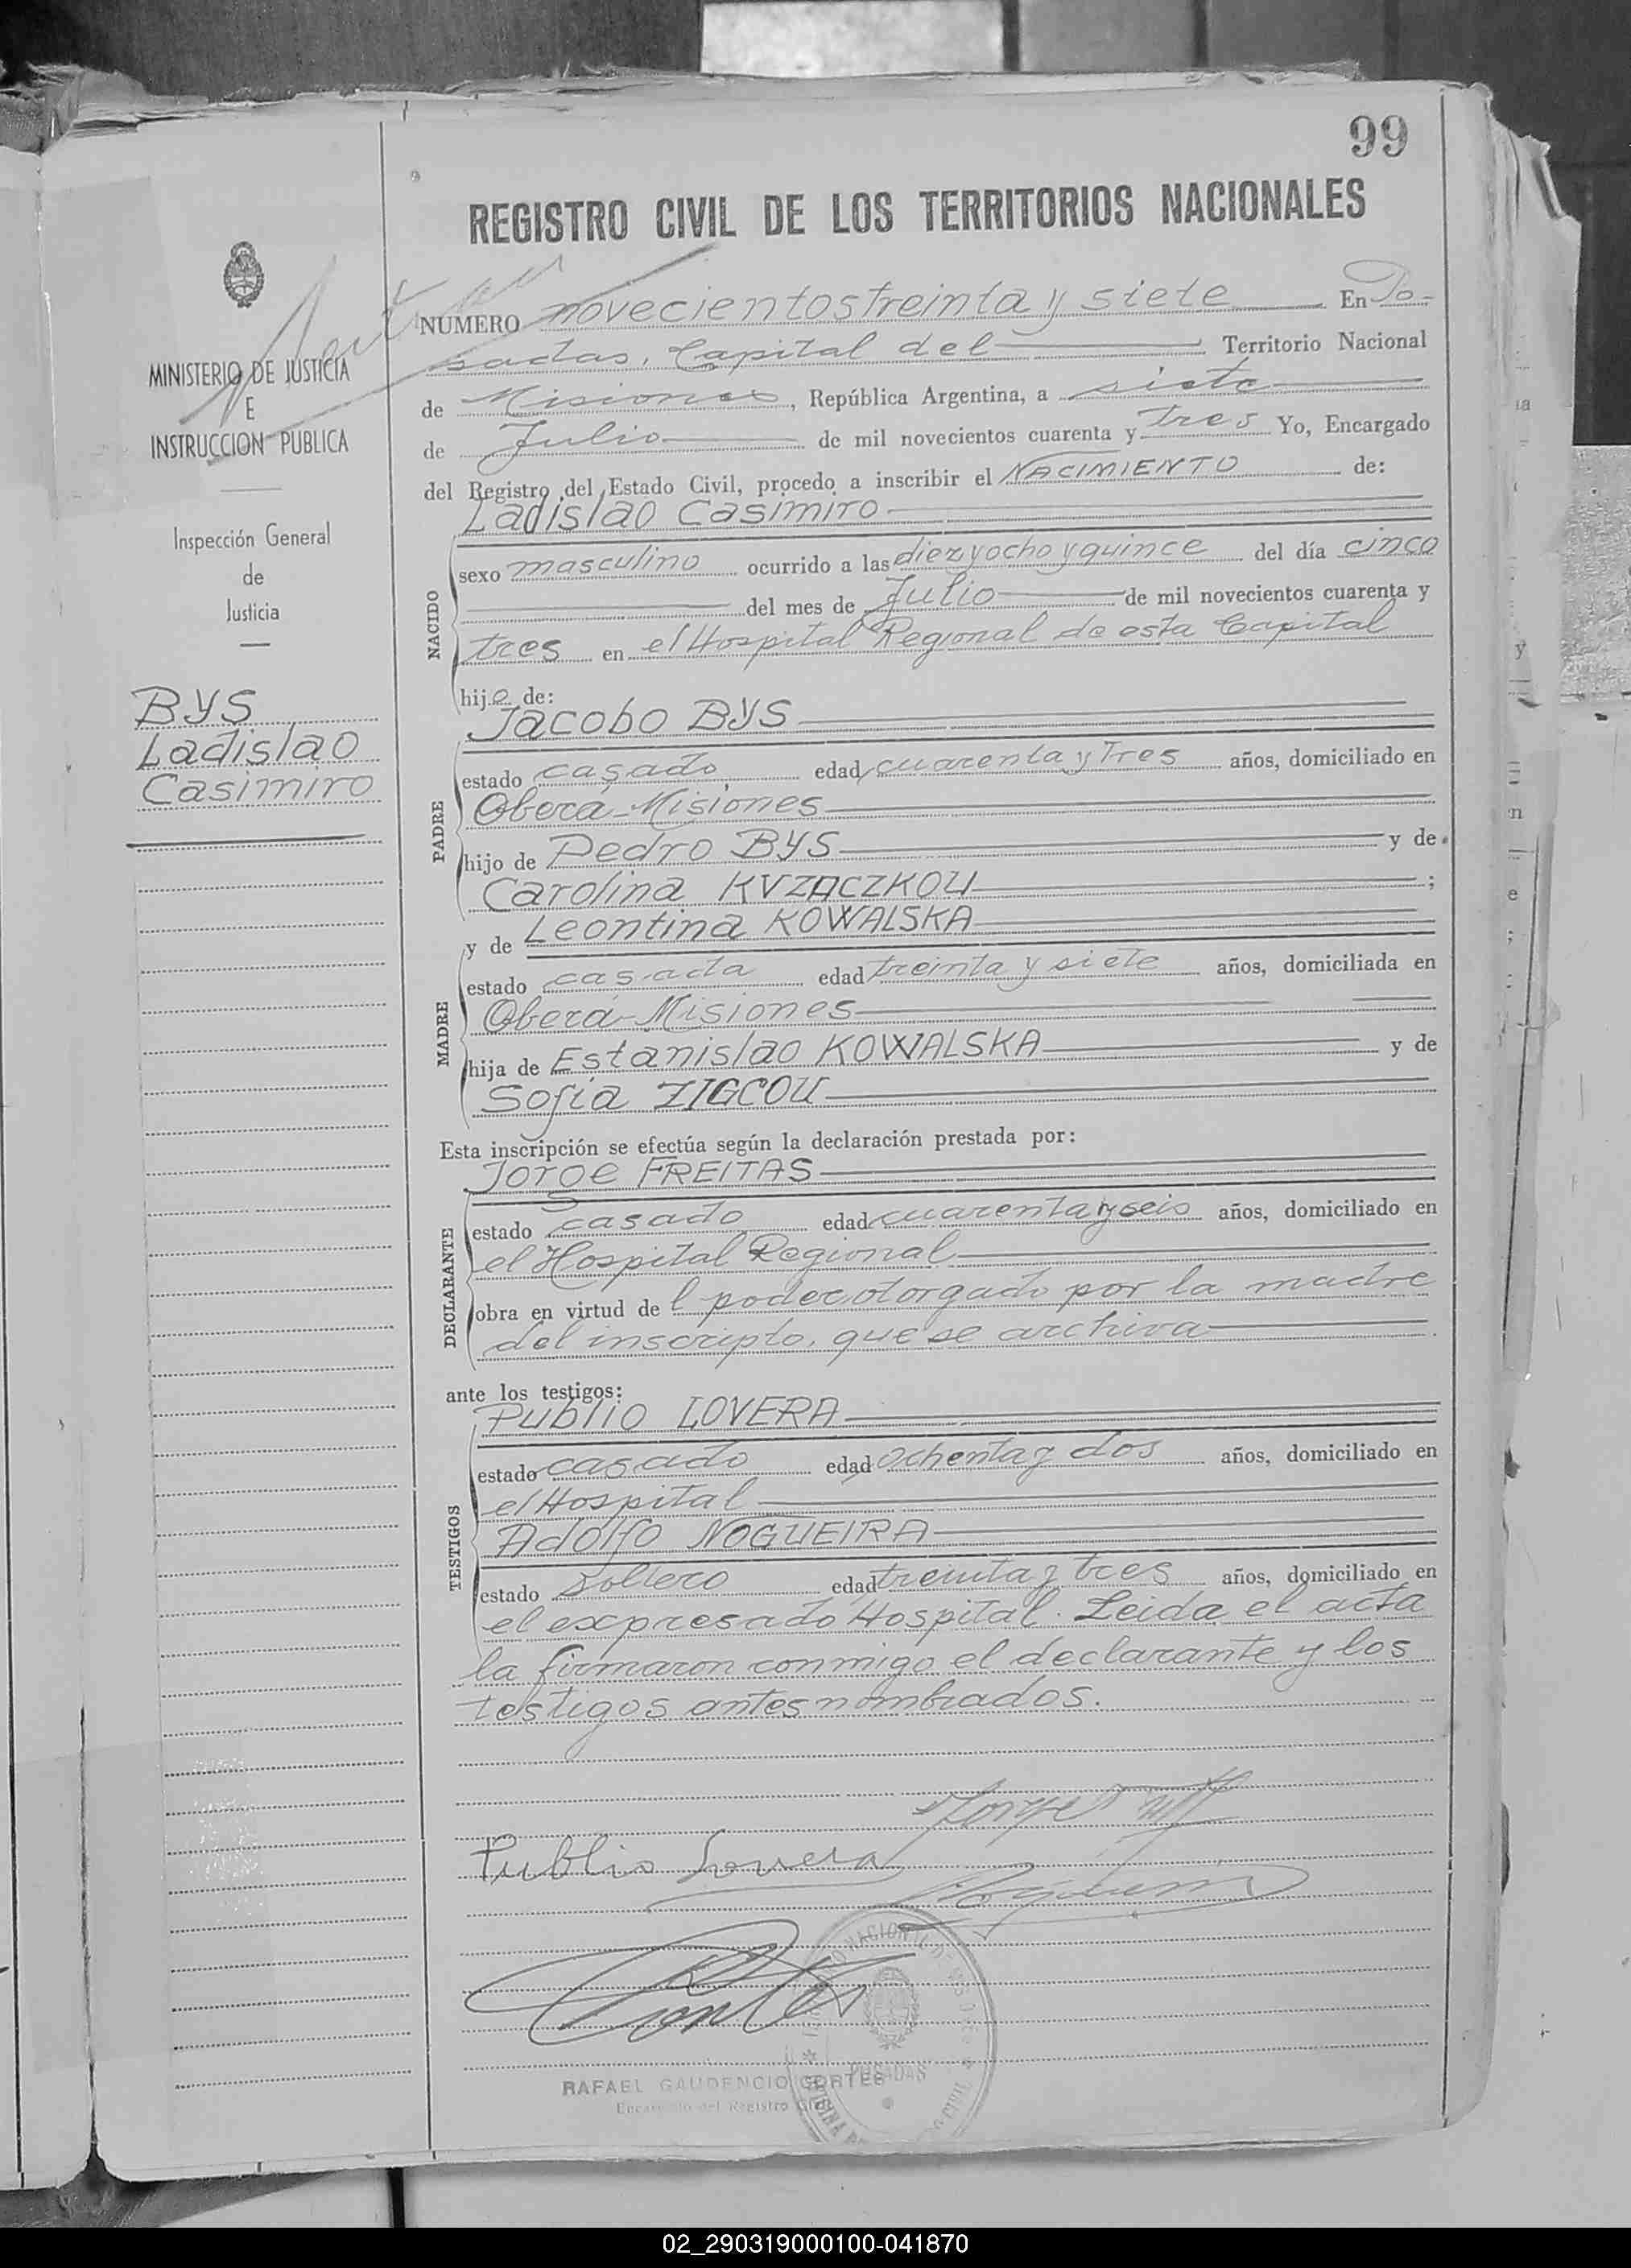 99
REGISTRO CIVIL DE LOS TERRITORIOS NACIONALES
MINISTERIO DE JUSTICIA
E
INSTRUCCION PUBLICA
Inspección General
de
Justicia
BYS
Ladislao
Casimiro
NUMERO novecientos treinta y siete En Po-
sadas, Capital del Territorio Nacional
de Misiones, República Argentina, a siete
de Julio de mil novecientos cuarenta y tres Yo, Encargado
del Registro del Estado Civil, procedo a inscribir el NACIMIENTO de:
Ladislao Casimiro
NACIDO
sexo masculino ocurrido a las diez y ocho y quince del día cinco
del mes de Julio de mil novecientos cuarenta y
tres en el Hospital Regional de esta Capital
hijo de:
Jacobo BYS
PADRE
estado casado edad cuarenta y tres años, domiciliado en
Oberá-Misiones
hijo de Pedro BYS y de
Carolina KVZACZKOU ;
y de Leontina KOWALSKA
MADRE
estado casada edad treinta y siete años, domiciliada en
Oberá-Misiones
hija de Estanislao KOWALSKA y de
Sofía ZIGCOU
Esta inscripción se efectúa según la declaración prestada por:
Jorge FREITAS
DECLARANTE
estado casado edad cuarenta y seis años, domiciliado en
el Hospital Regional
obra en virtud de l poder otorgado por la madre
del inscripto, que se archiva
ante los testigos:
Publio LOVERA
TESTIGOS
estado casado edad ochenta y dos años, domiciliado en
el Hospital
Adolfo NOGUEIRA
estado soltero edad treinta y tres años, domiciliado en
el expresado Hospital. Leida el acta
la firmaron conmigo el declarante y los
testigos antes nombrados.
Jorge
Publio Lovera
Cortes
POSADAS
RAFAEL GAUDENCIO CORTES
Encargado del Registro Civil
02_290319000100-041870